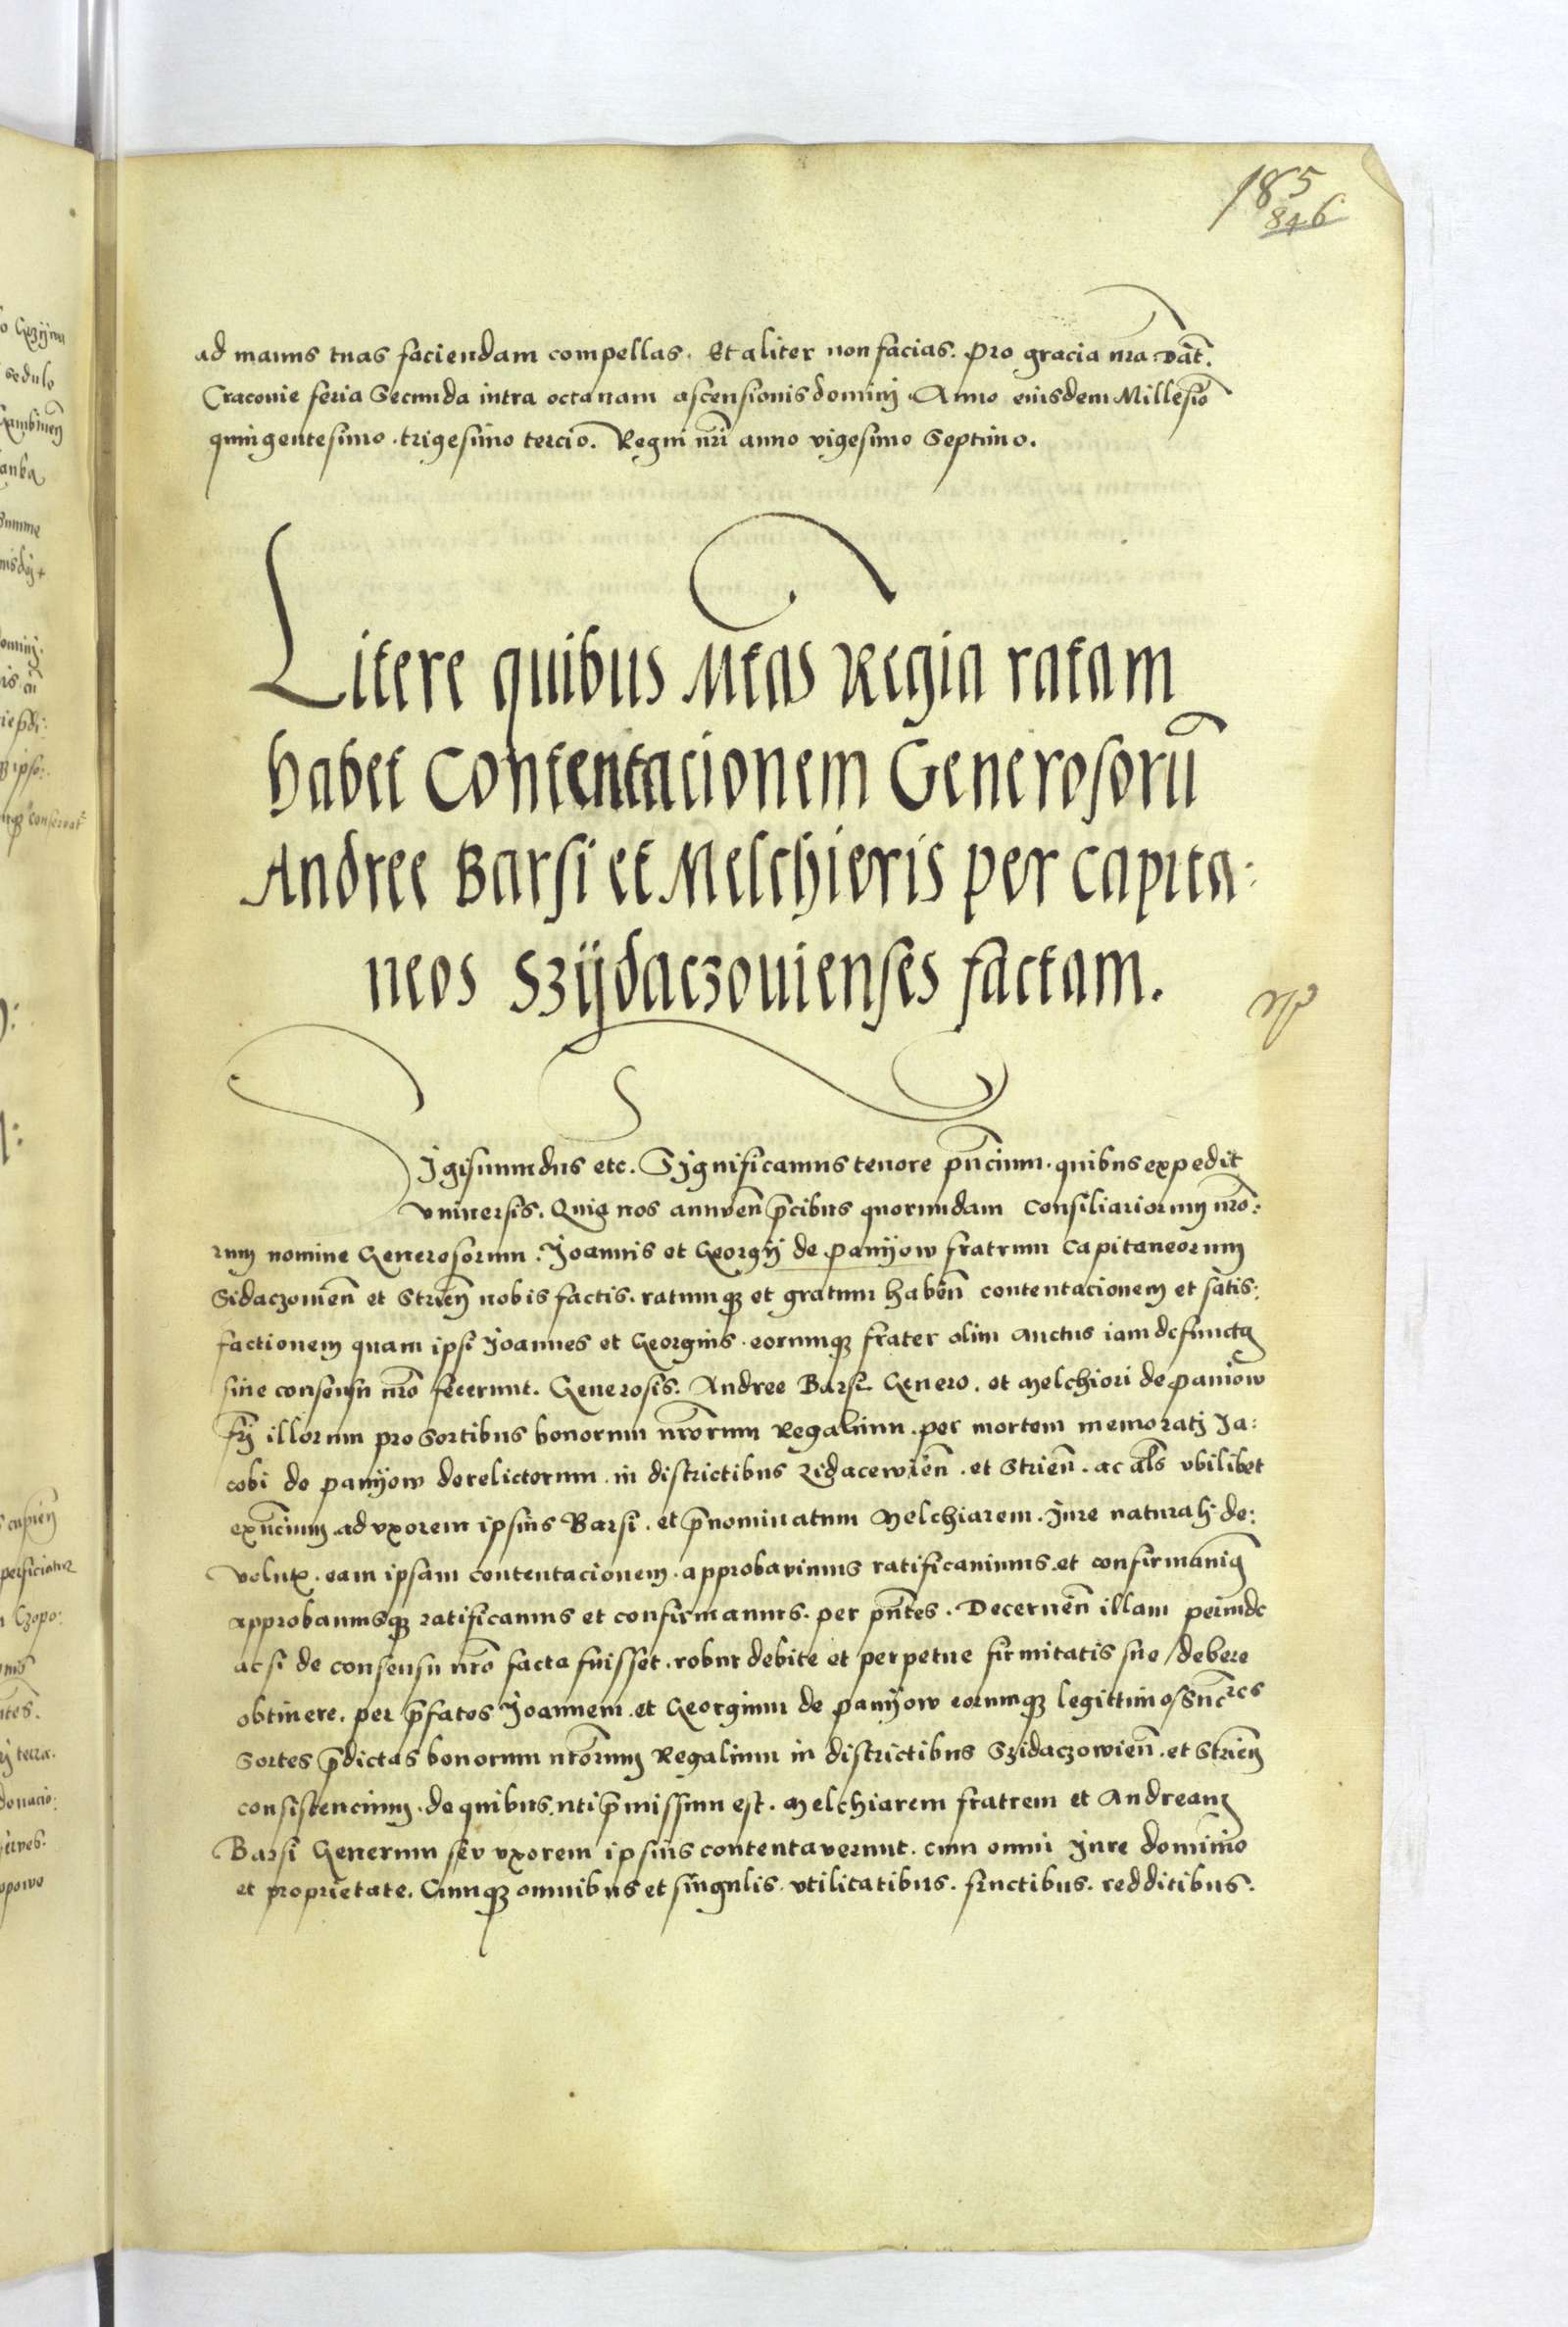 185
846
ad manus tuas faciendam compellas. Et aliter non facias. Pro gracia nra. Dat.
Cracovie feria Secunda intra octavam ascensionis domini. Anno eiusdem Millesio
quingentesimo. trigesimo tercio. Regni nri anno vigesimo Septimo.
Litere quibus Mtas Regia ratam
habet Contentacionem Generosorū
Andree Barsi et Melchioris per capita:
neos Szÿdaczovienses factam.
Sigismundus etc. Significamus tenore pñcium. quibus expedit
vniversis. Quia nos annuen̄ p̄cibus quorumdam Consiliariorum nrō:
rum nomine Generosorum. Joannis et Georgÿ de panÿow fratrum Capitaneorum
Sidaczovien̄ et Strien̄ nobis factis. ratumqꝫ et gratum haben̄ contentacionem et satis:
factionem quam ipsi Joannes et Georgius. eorumqꝫ frater olim Auctus iam defunctꝯ
sine consensu nrō fecerunt. Generosis. Andree Barsi. Genero. et Melchiori de paniow
frī illorum pro Sortibus bonorum nrōrum Regalium. per mortem memorati Ja:
cobi de panÿow derelictorum. in districtibus Zidacewien̄. et Strien̄. ac al̄s vbilibet
exn̄cium ad vxorem ipsius Barsi. et p̄nominatum Melchiarem. Jure naturali de:
volutꝭ. eam ipsam contentacionem. approbavimus ratificavimus. et confirmavimꝯ
approbamusqꝫ ratificamus et confirmamus. per pn̄tes. Decernen̄ illam perinde
ac si de consensu nrō facta fuisset. robur debite et perpetue firmitatis sue / debere
obtinere. per p̄fatos Joannem. et Georgium de panÿow eorumqꝫ legittimos Sucres
Sortes p̄dictas bonorum nrōrum Regalium in districtibus Szidaczowien̄. et Strien̄
consistencium. de quibus. uti p̄missum est. Melchiarem fratrem et Andream
Barsi Generum seu vxorem ipsius contentaverunt. cum omni Jure dominio
et proprietate. Cumqꝫ omnibus et singulis. vtilitatibus. fructibus. redditibus.